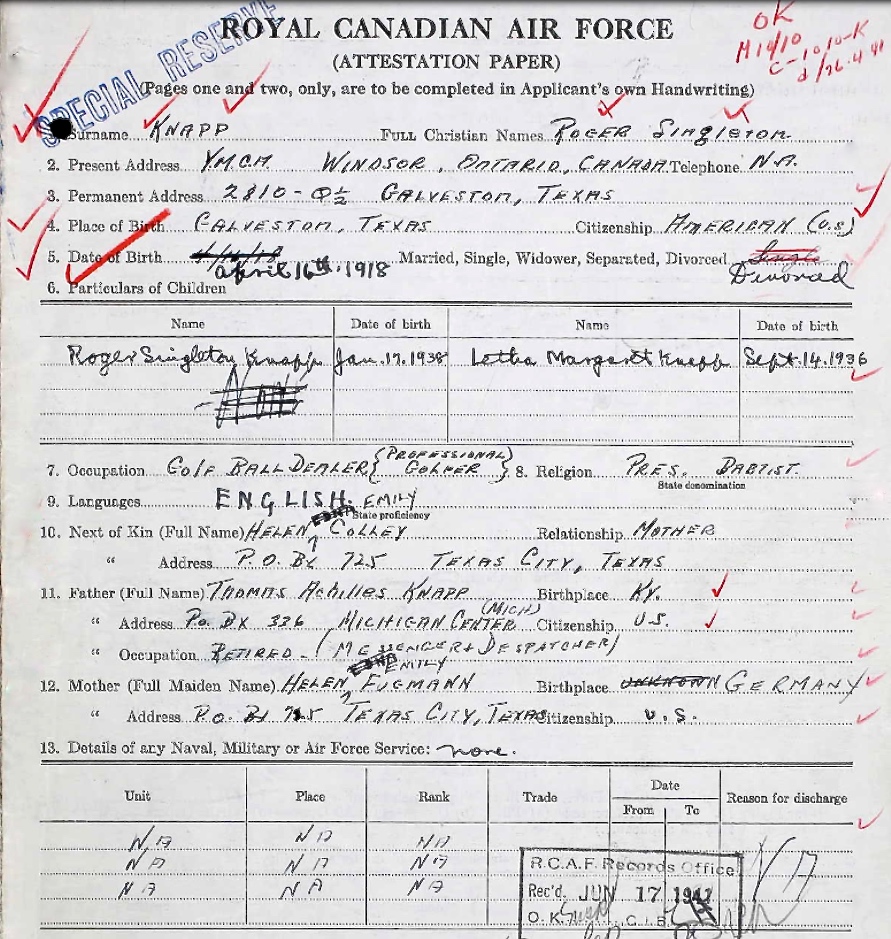 ROYAL CANADIAN AIR FORCE
SPECIAL RESERVE
OK
M 14/10
(ATTESTATION PAPER)
(Pages one and two, only, are to be completed in Applicant's own Handwriting)
Surname KNAPP FULL Christian Names ROGER SINGLETON
2. Present Address YMCA WINDSOR, ONTARIO, CANADA Telephone N.A.
3. Permanent Address 2810 - Q½ GALVESTON, TEXAS
4. Place of Birth GALVESTON, TEXAS Citizenship AMERICAN (U.S)
5. Date of Birth April 16th, 1918 Married, Single, Widower, Separated, Divorced Single Divorced
6. Particulars of Children
Name Date of birth Name Date of birth
Roger Singleton Knapp Jan. 17. 1938 Letha Margaret Knapp Sept. 14. 1936
7. Occupation GOLF BALL DEALER {PROFESSIONAL GOLFER} 8. Religion PRES. BABTIST.
State denomination
9. Languages ENGLISH.
State proficiency
10. Next of Kin (Full Name) HELEN EDNA EMILY COLLEY Relationship MOTHER
" Address P.O. BX 725 TEXAS CITY, TEXAS
11. Father (Full Name) THOMAS AChilles KNAPP Birthplace KY.
" Address P.O. BX 326 MICHIGAN CENTER (MICH) Citizenship U.S.
" Occupation RETIRED - (MESSENGER & DESPATCHER)
12. Mother (Full Maiden Name) HELEN EDNA EMILY FUGMANN Birthplace UNKNOWN GERMANY
" Address P.O. BX 725 TEXAS CITY, TEXAS Citizenship U.S.
13. Details of any Naval, Military or Air Force Service: none.
Unit Place Rank Trade Date From To Reason for discharge
N.A N A NA NA
N A N A NA
N A N A NA
R.C.A.F. Records Office
Rec'd. JUN 17 1941
O.K. C.I.B.